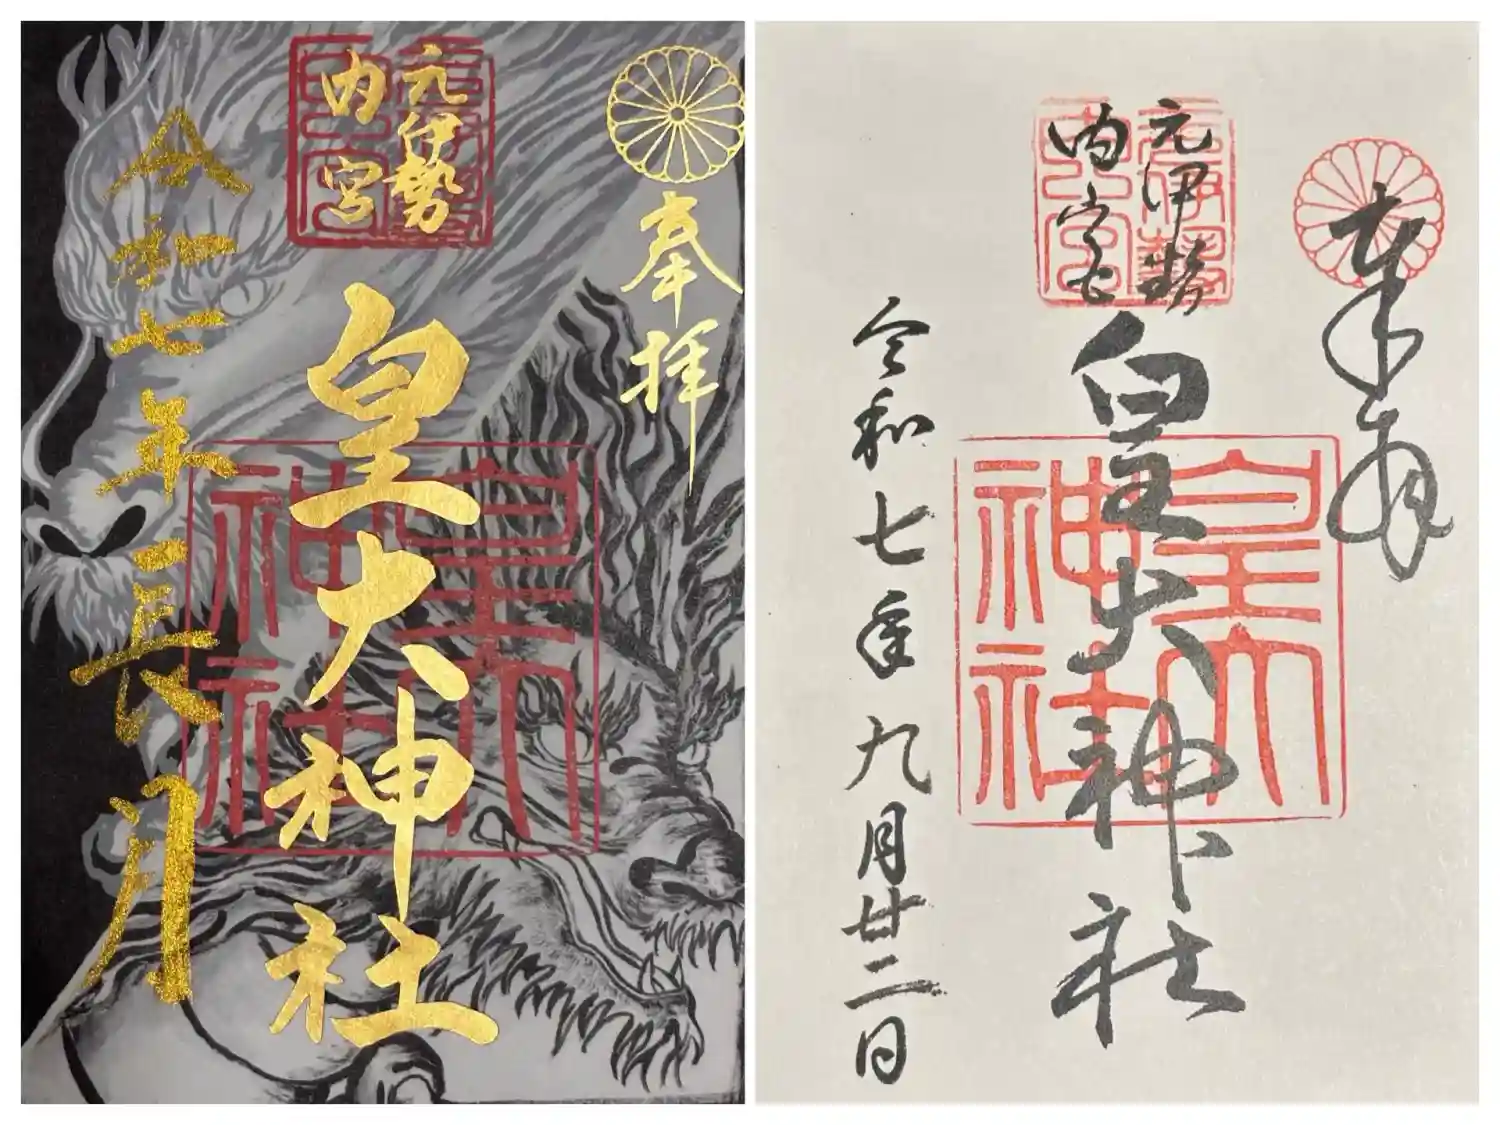 奉拝
元伊勢
内宮
皇大神社
令和七年長月
皇大
神社
奉拝
元伊勢
内宮
皇大神社
令和七年九月廿二日
元伊勢
内宮
皇大
神社